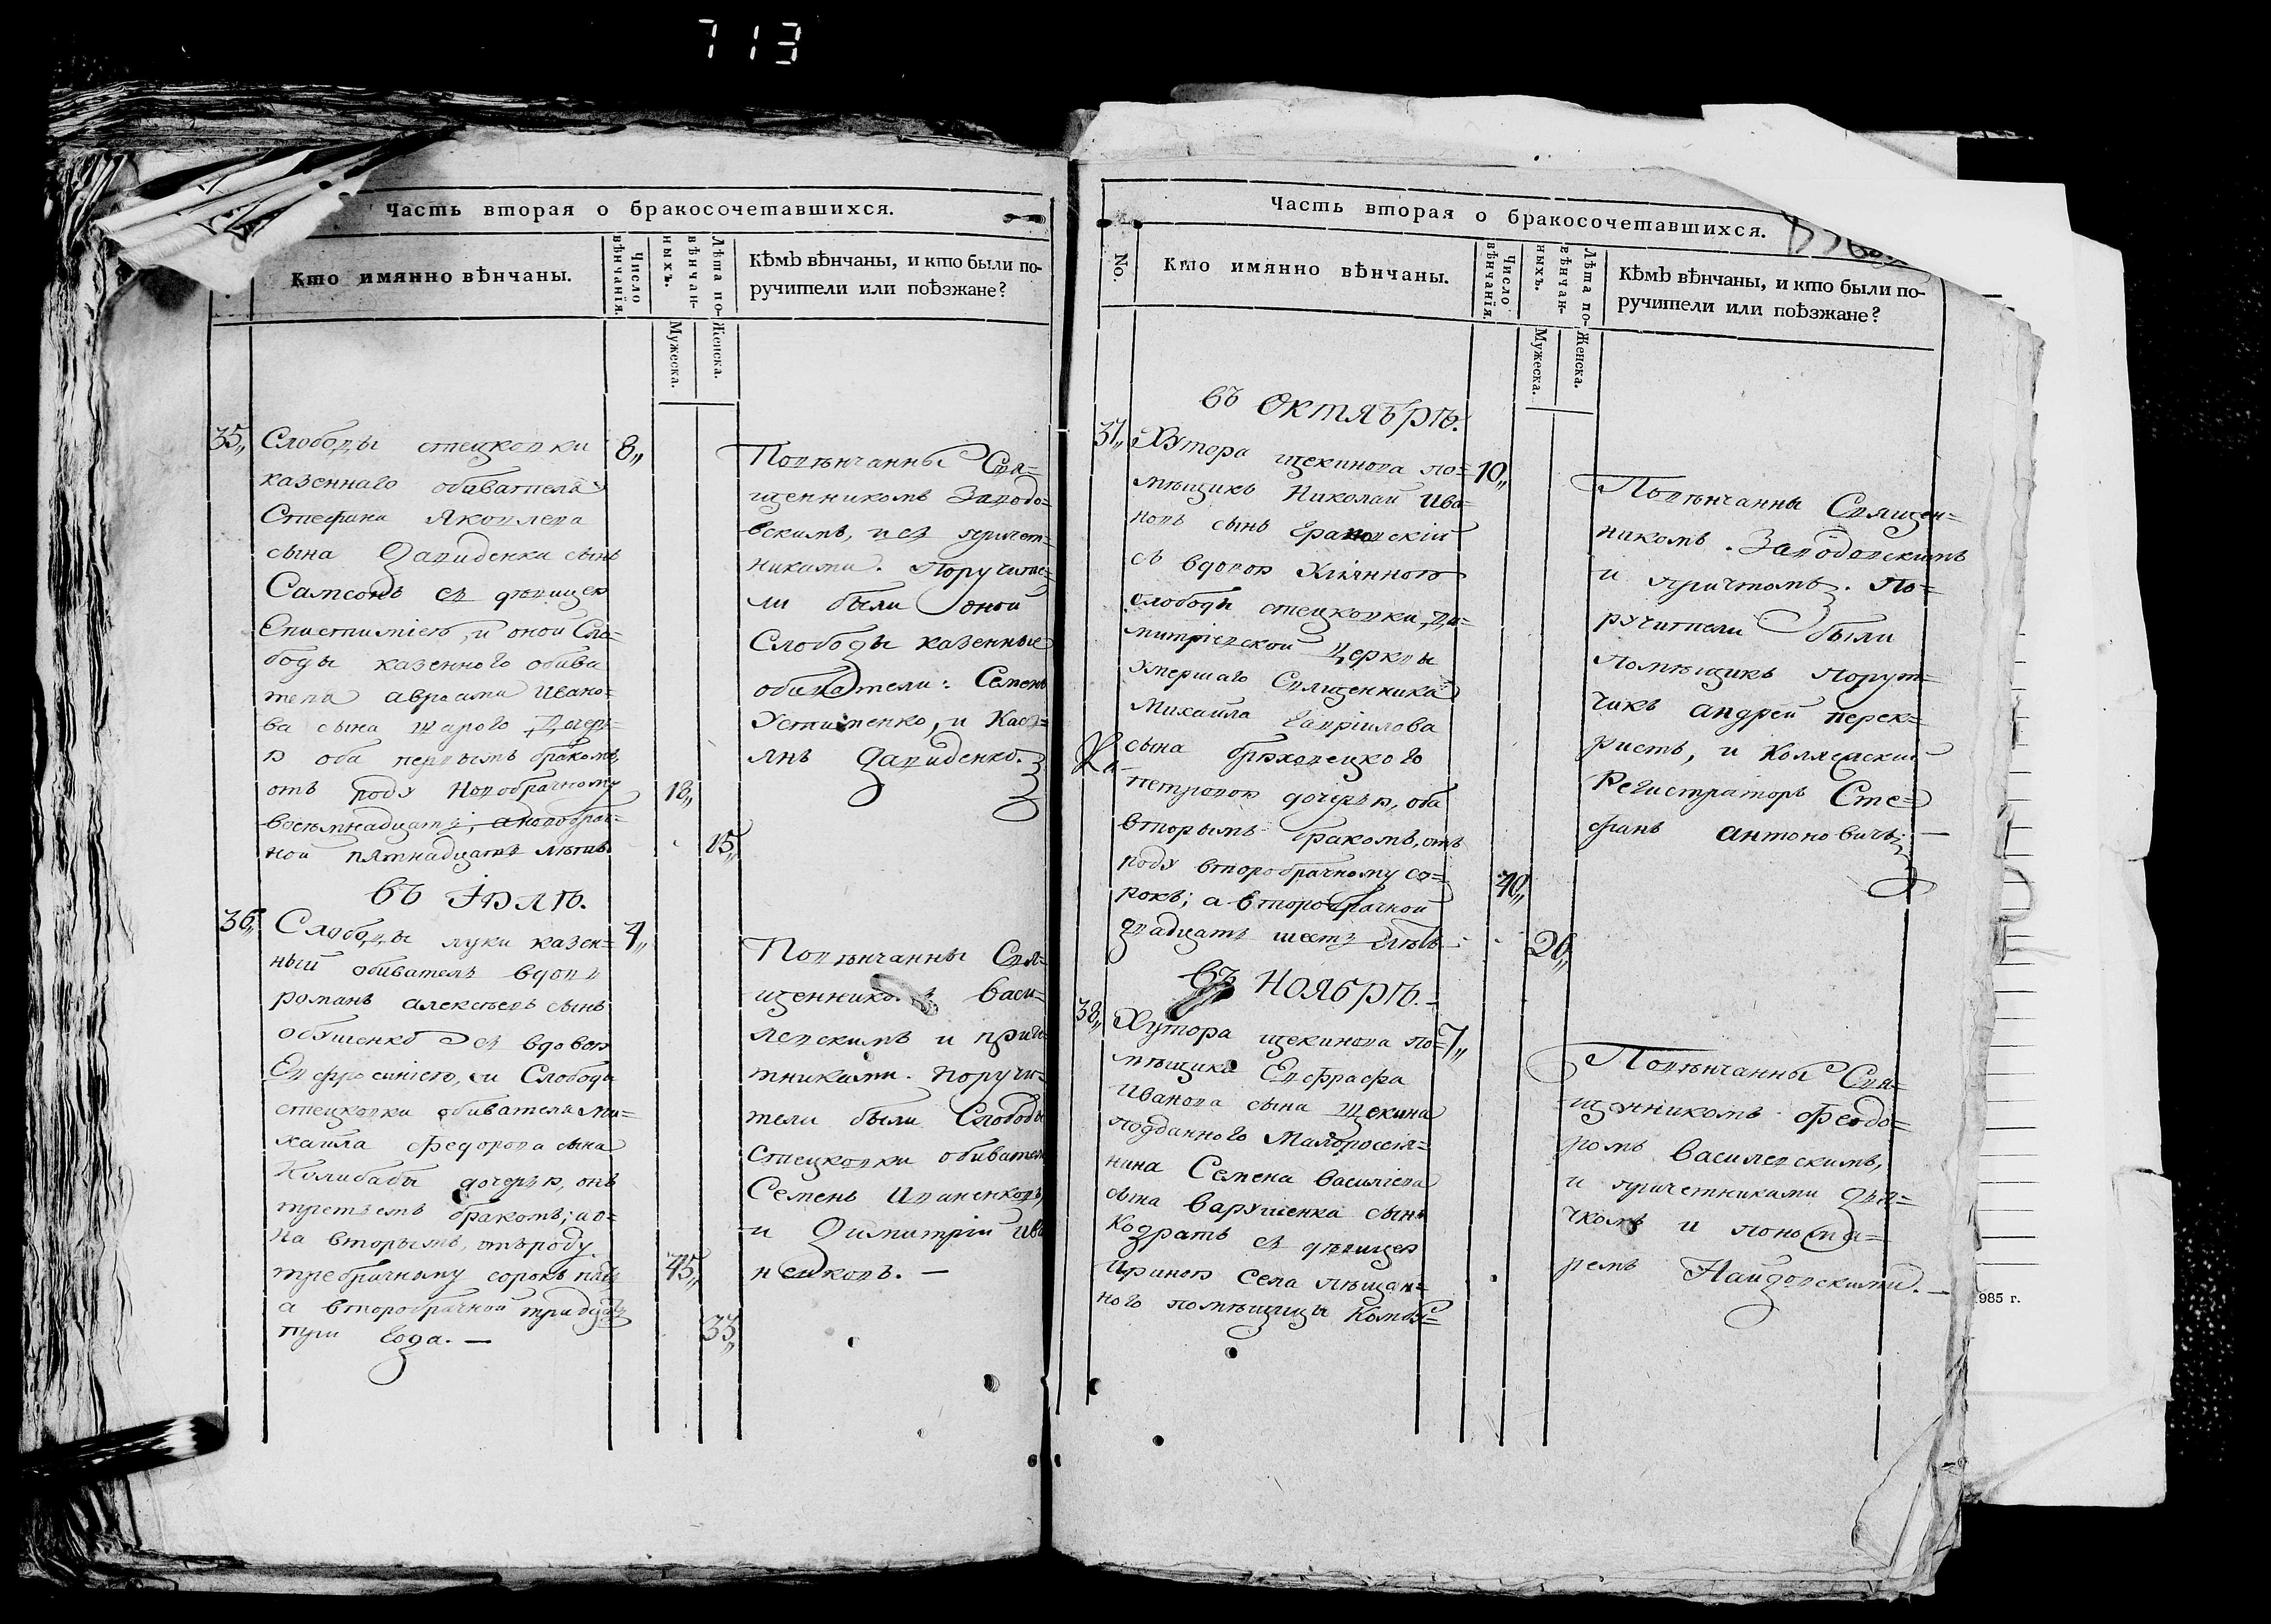 713
Часть вторая о бракосочетавшихся.
Кто имянно вѣнчаны.
Число вѣнчанїя.
Лѣта повѣнчанныхъ.
Мужеска.
Женска.
Кѣмъ вѣнчаны, и кто были по-
ручители или поѣзжане?
35„ Слободы стецковки 8„
казеннаго обивателя
Стефана Яковлева
сына Давиденка сынъ
Самсонъ съ дѣвицею
Епистимїею, и оной Сло=
боды казенного обива
теля Авраама Ивано=
ва сына шарого дочерь=
ю оба первымъ бракомъ,
отъ роду Новобрачному 18„
восемнадцать; а новобрач=
ной пятнадцать лѣтъ. 15„
Повѣнчанны Свя=
щенникомъ Заводо=
вскимъ, и съ причет=
никами. Поручите=
ли были оной
Слободы казенные
обиватели: Семенъ
Устименко, и Касїя=
янъ Давиденко.
Въ Іюлѣ.
36„ Слободы луки казен= 4„
ный обиватель вдовъ
романъ алексѣевъ сынъ
съ вдовою
Евфросинїею, и Слободы
стецковки обивателя Ми=
хаила Федорова сына
Колибабы дочерью, онъ
третьемъ бракомъ; а о=
на вторымъ, отъ роду
требрачному сорокъ пять 45„
а второбрачной тридцать
три года.— 33„
Повѣнчанны Свя=
щенникомъ Васи=
левскимъ и приче=
тниками. Поручи=
тели были Слободы
Стецковки обиватели
Семенъ Иваненковъ,
и Димитрій Ива
ненковъ.—
Часть вторая о бракосочетавшихся.
No.
Кто имянно вѣнчаны.
Число вѣнчанїя.
Лѣта повѣнчанныхъ.
Мужеска.
Женска.
Кѣмъ вѣнчаны, и кто были по-
ручители или поѣзжане?
въ Октябрѣ.
37„ Хутора щекинова по= 10„
мѣщикъ Николай Ива=
новъ сынъ
съ вдовою Улїянною
слободы стецковки, Ди=
митрїевской Церквы
умершаго Священника
Михаила Гаврїилова
сына
петровою дочерью, оба
вторымъ бракомъ, отъ
роду второбрачному со= 40„
рокъ; а второбрачной
двадцать шесть лѣтъ. 26„
Повѣнчанны Священ=
никомъ Заводовскимъ
и причтомъ. По=
ручители были
помѣщикъ порут=
чикъ андрей перек=
ристъ, и Колежскій
Регистраторъ Сте=
фанъ антоновичъ;—
въ Ноябрѣ.—
38„ Хутора щекинова по= 7„
мѣщика Евграфа
Иванова сына щекина
подданного Малороссїя=
нина Семена Василїева
сына варушенка сынъ
Кодратъ съ дѣвицею
Ириною Села пѣщан=
ного помѣщицы Комбу=
Повѣнчанны Свя=
щенникомъ Феодо=
ромъ Василевскимъ,
и причетниками Дья=
чкомъ и понома=
ремъ Найдовскими.—
985 г.